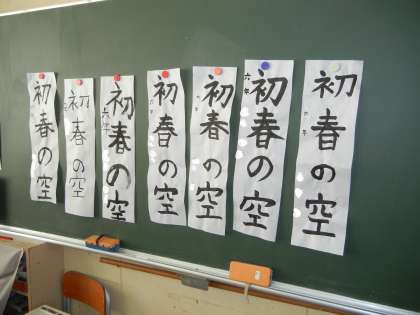 初春の空
初春の空
六年
初春の空
初春の空
初春の空
六年
初春の空
初春の空